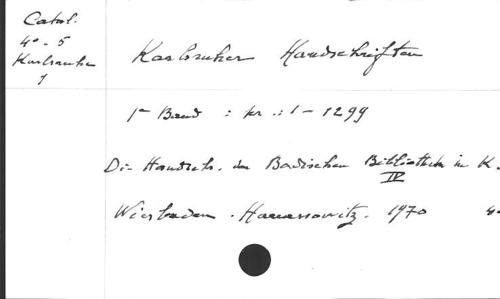 Catal.
4° - 5
Karlsruhe
1
Karlsruher Handschriften
1r Band : Nr. : 1 - 1299
Die Handsch. der Badischen Bibliothek in K.
IV
Wiesbaden. Harrassowitz. 1970 4°